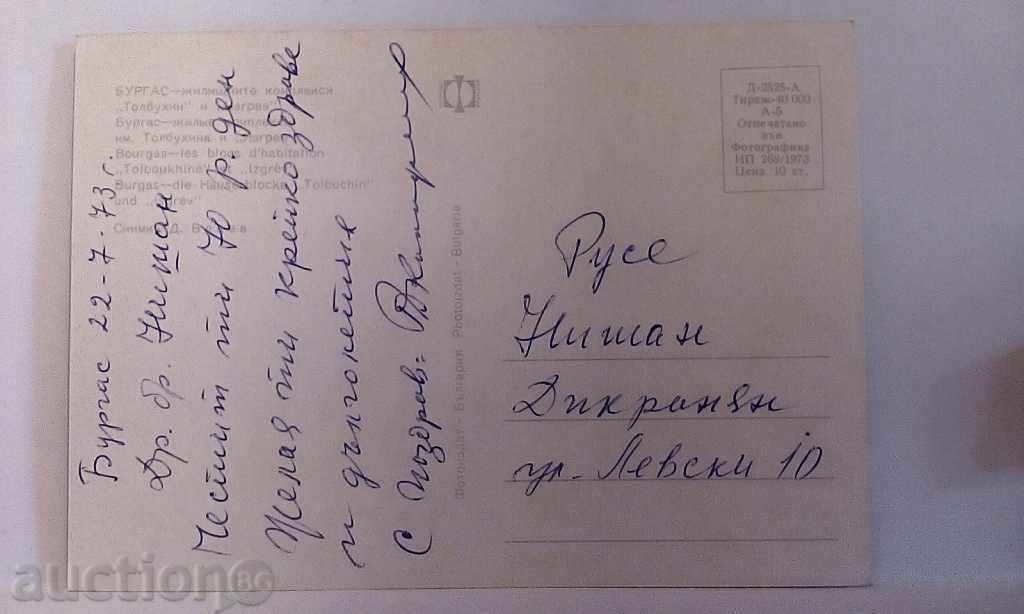 БУРГАС—жилищните комплекси
„Толбухин" и „Изгрев"
Бургас—жилые
им. Толбухина и „Изгрев"
Bourgas—les blocs d'habitation
„Tolboukhine" et „Izgrev"
Burgas—die Häuserblocks „Tolbuchin"
und „Izgrev"
Снимка Д.
Бургас 22-7-73 г.
Др. бр. Нишан
Честит ти 70 р. ден
Желая ти крепко здраве
и дълголетие
С поздрав:
Фотоиздат - България Photoizdat - Bulgarie
Д-2525-А
Тираж 40 000
А-5
Отпечатано
във
Фотографика
ИП 269/1973
Цена 10 ст.
Русе
Нишан
Дикранян
ул. Левски 10
auction.BG